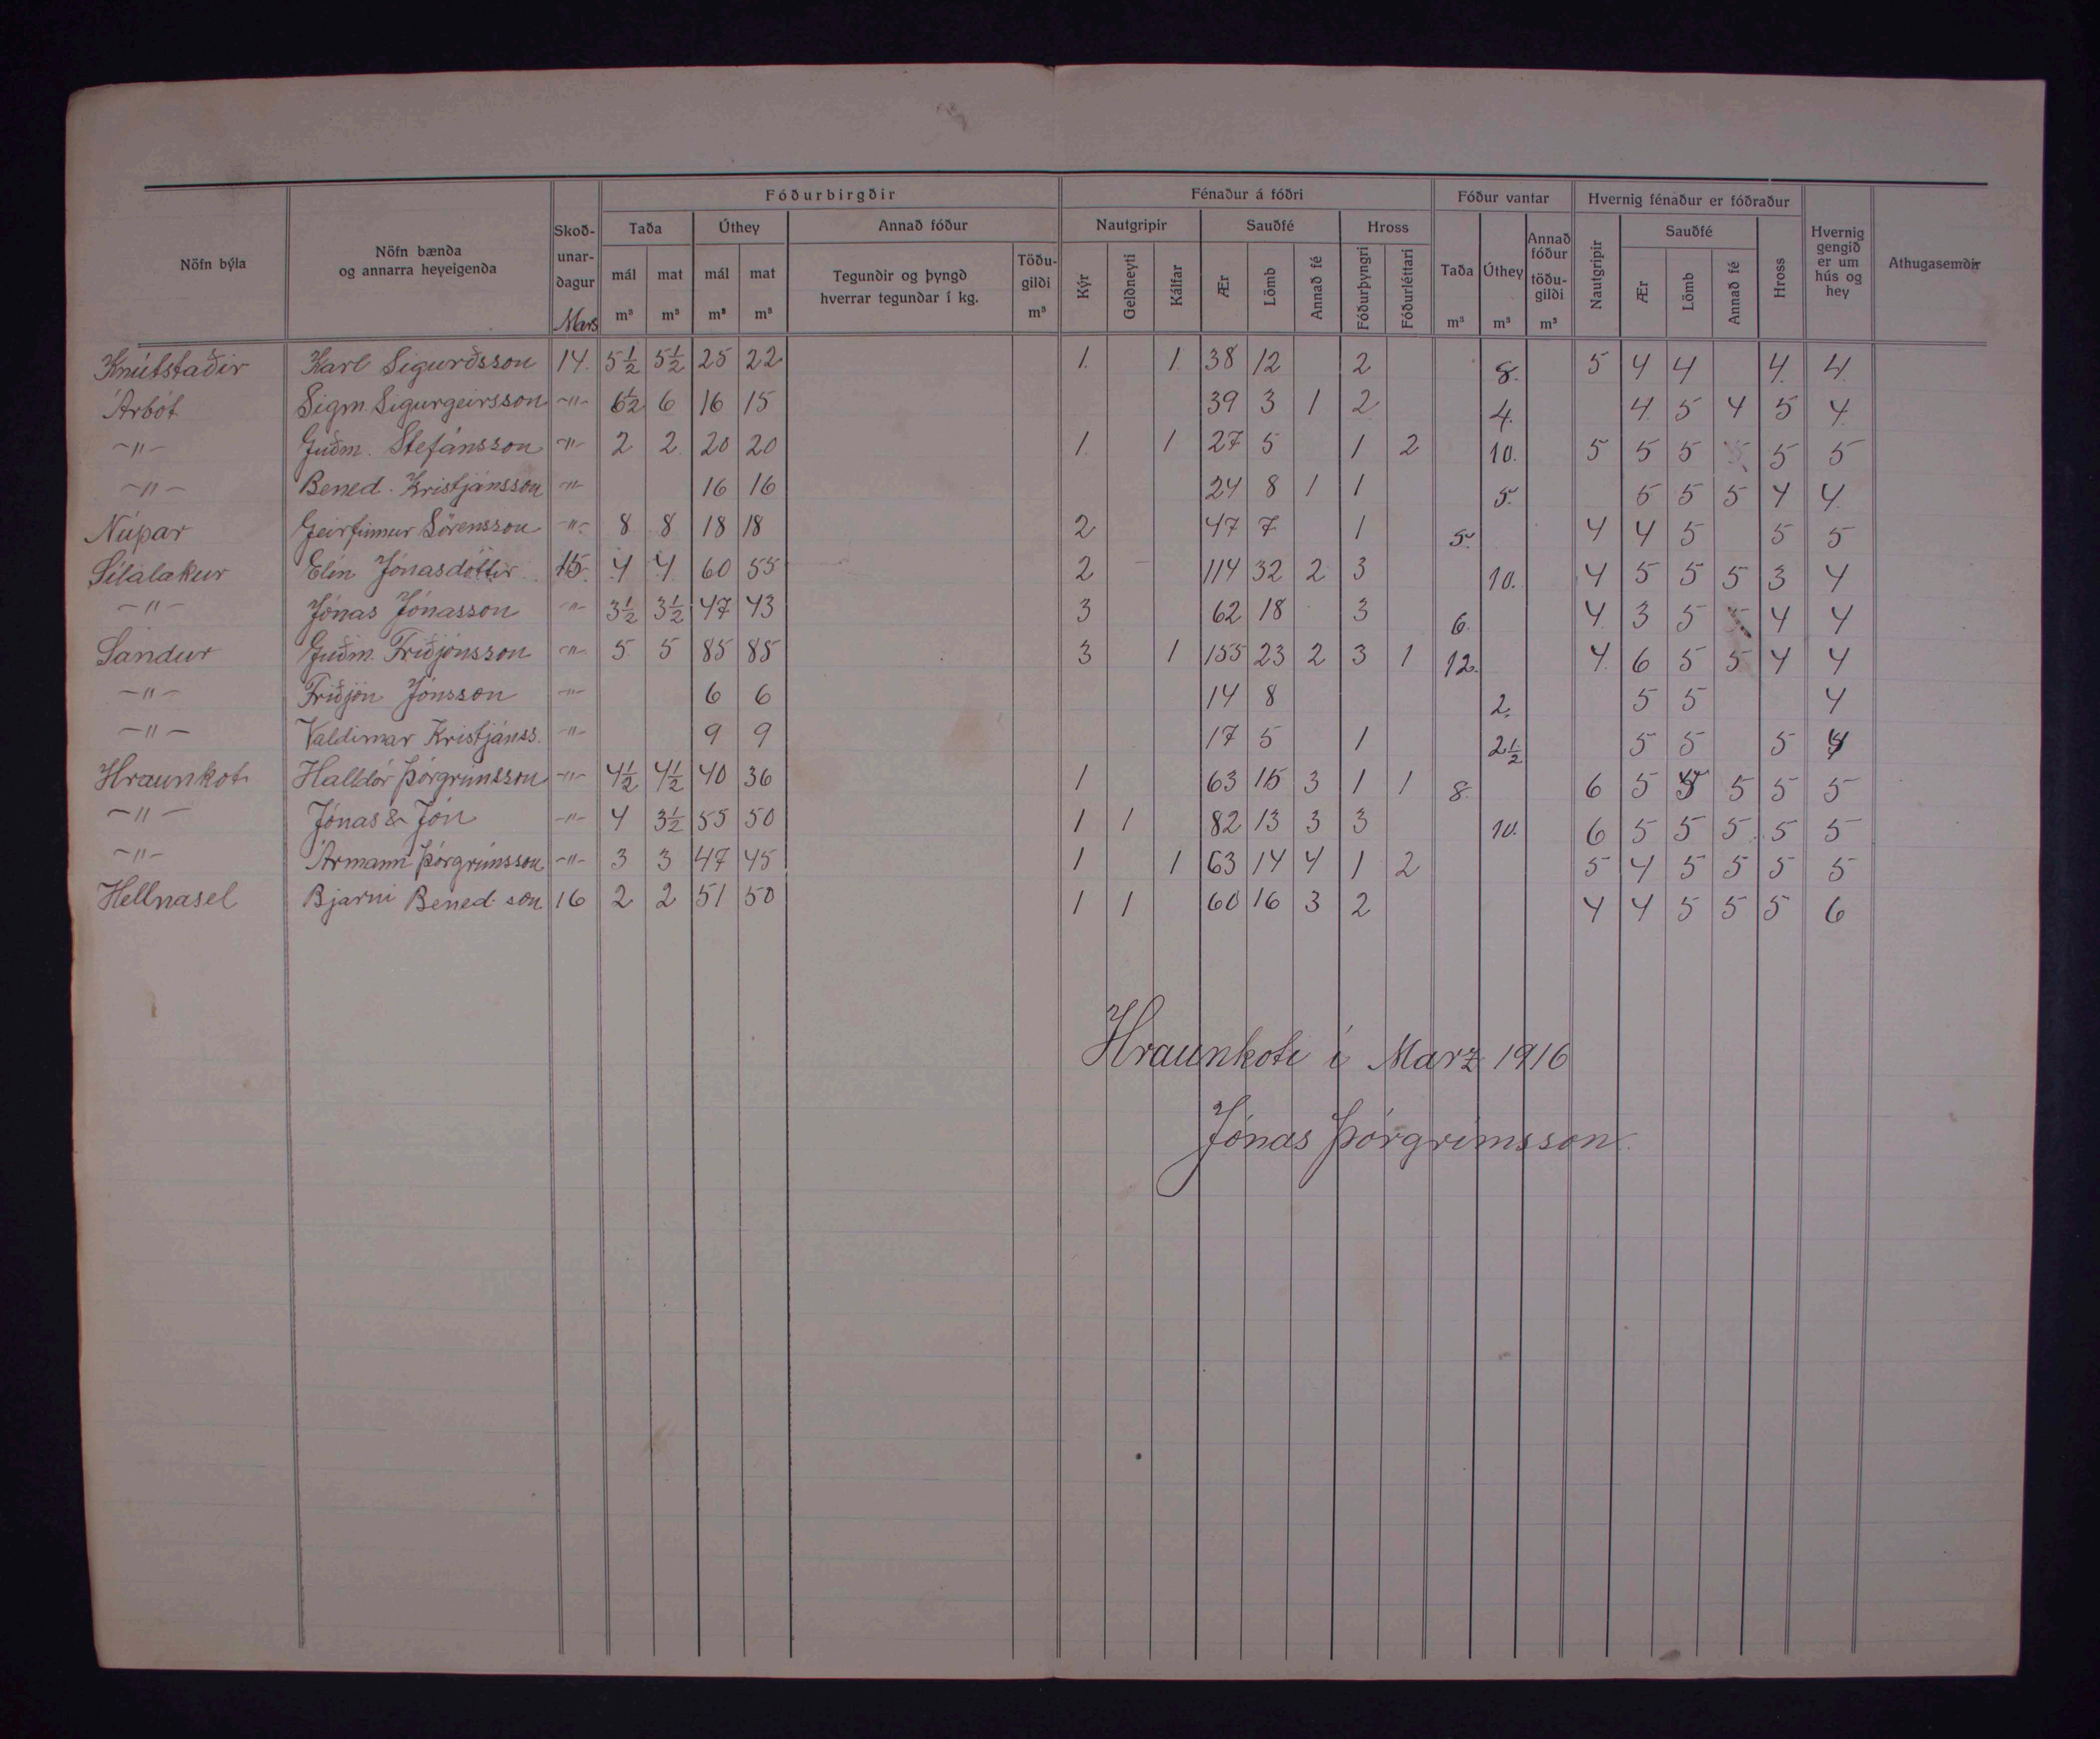 Nöfn býla | Nöfn bænda og annarra heyeigenda | Skoðunardagur Mars | Fóðurbirgðir | Fénaður á fóðri | Fóður vantar | Hvernig fénaður er fóðraður | Hvernig gengið er um hús og hey | Athugasemdir
Taða | Úthey | Annað fóður | Nautgripir | Sauðfé | Hross | Taða m³ | Úthey m³ | Annað fóður töðugildi m³ | Nautgripir | Sauðfé | Hross
mál m³ | mat m³ | mál m³ | mat m³ | Tegundir og þyngd hverrar tegundar í kg. | Töðugildi m³ | Kýr | Geldneyti | Kálfar | Ær | Lömb | Annað fé | Fóðurþyngri | Fóðurléttari | Ær | Lömb | Annað fé
Knútstaðir | Karl Sigurðsson | 14. | 5½ | 5½ | 25 | 22 | 1. | 1. | 38 | 12 | 2 | 8. | 5 | 4 | 4 | 4. | 4.
Árbót | Sigm. Sigurgeirsson | -"- | 6½ | 6 | 16 | 15 | 39 | 3 | 1 | 2 | 4. | 4. | 5 | 4 | 5 | 4.
-"- | Guðm. Stefánsson | -"- | 2 | 2 | 20 | 20 | 1. | 1 | 27 | 5 | 1 | 2 | 10. | 5 | 5 | 5 | 5 | 5
-"- | Bened. Kristjánsson | -"- | 16 | 16 | 24 | 8 | 1 | 1 | 5. | 5 | 5 | 5 | 4 | 4.
Núpar | Geirfinnur Sörensson | -"- | 8 | 8 | 18 | 18 | 2 | 47 | 7 | 1 | 5. | 4 | 4 | 5 | 5 | 5
Sílalækur | Elín Jónasdóttir | 15. | 4 | 4 | 60 | 55 | 2 | 114 | 32 | 2 | 3 | 10. | 4 | 5 | 5 | 5 | 3 | 4
-"- | Jónas Jónasson | -"- | 3½ | 3½ | 47 | 43 | 3 | 62 | 18 | 3 | 6. | 4. | 3 | 5 | 4 | 4
Sandur | Guðm. Friðjónsson | -"- | 5 | 5 | 85 | 85 | 3 | 1 | 155 | 23 | 2 | 3 | 1 | 12. | 4. | 6 | 5 | 5 | 4 | 4
-"- | Friðjón Jónsson | -"- | 6 | 6 | 14 | 8 | 2. | 5 | 5 | 4
-"- | Valdimar Kristjánss. | -"- | 9 | 9 | 17 | 5 | 1 | 2½ | 5 | 5 | 5 | 4
Hraunkot | Halldór Þórgrímsson | -"- | 4½ | 4½ | 40 | 36 | 1 | 63 | 15 | 3 | 1 | 1 | 8. | 6 | 5 | 5 | 5 | 5
-"- | Jónas & Jón | -"- | 4 | 3½ | 55 | 50 | 1 | 1 | 82 | 13 | 3 | 3 | 10. | 6 | 5 | 5 | 5 | 5 | 5
-"- | Ármann Þórgrímsson | -"- | 3 | 3 | 47 | 45 | 1 | 1 | 63 | 14 | 4 | 1 | 2 | 5 | 4 | 5 | 5 | 5 | 5
Hellnasel | Bjarni Bened.son | 16 | 2 | 2 | 51 | 50 | 1 | 1 | 60 | 16 | 3 | 2 | 4 | 4 | 5 | 5 | 5 | 6
Hraunkoti í Marz 1916
Jónas Þórgrímsson.